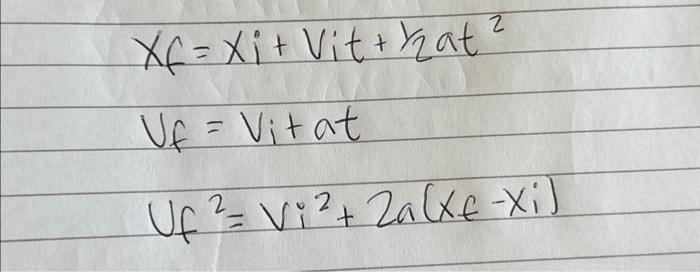 Xf = Xi + Vit + ½at²
Vf = Vi + at
Vf² = Vi² + 2a(Xf - Xi)